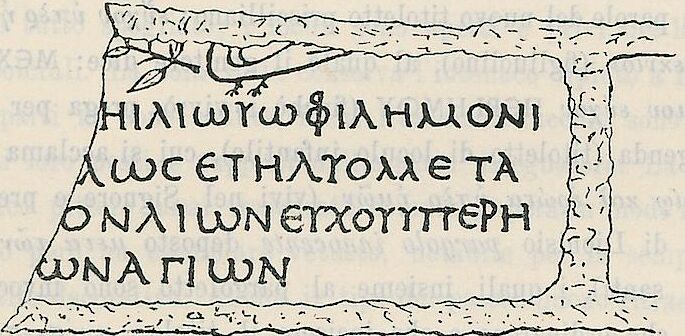 ΗΙΛΙΩΥΩΦΙΛΗΜΟΝΙ
ΛΩϹ ΕΤΗΛΥΟΛΛΕΤΑ
ΟΝΛΙΩΝΕΥΧΟΥΥΠΕΡΗ
ΩΝΑΓΙΩΝ